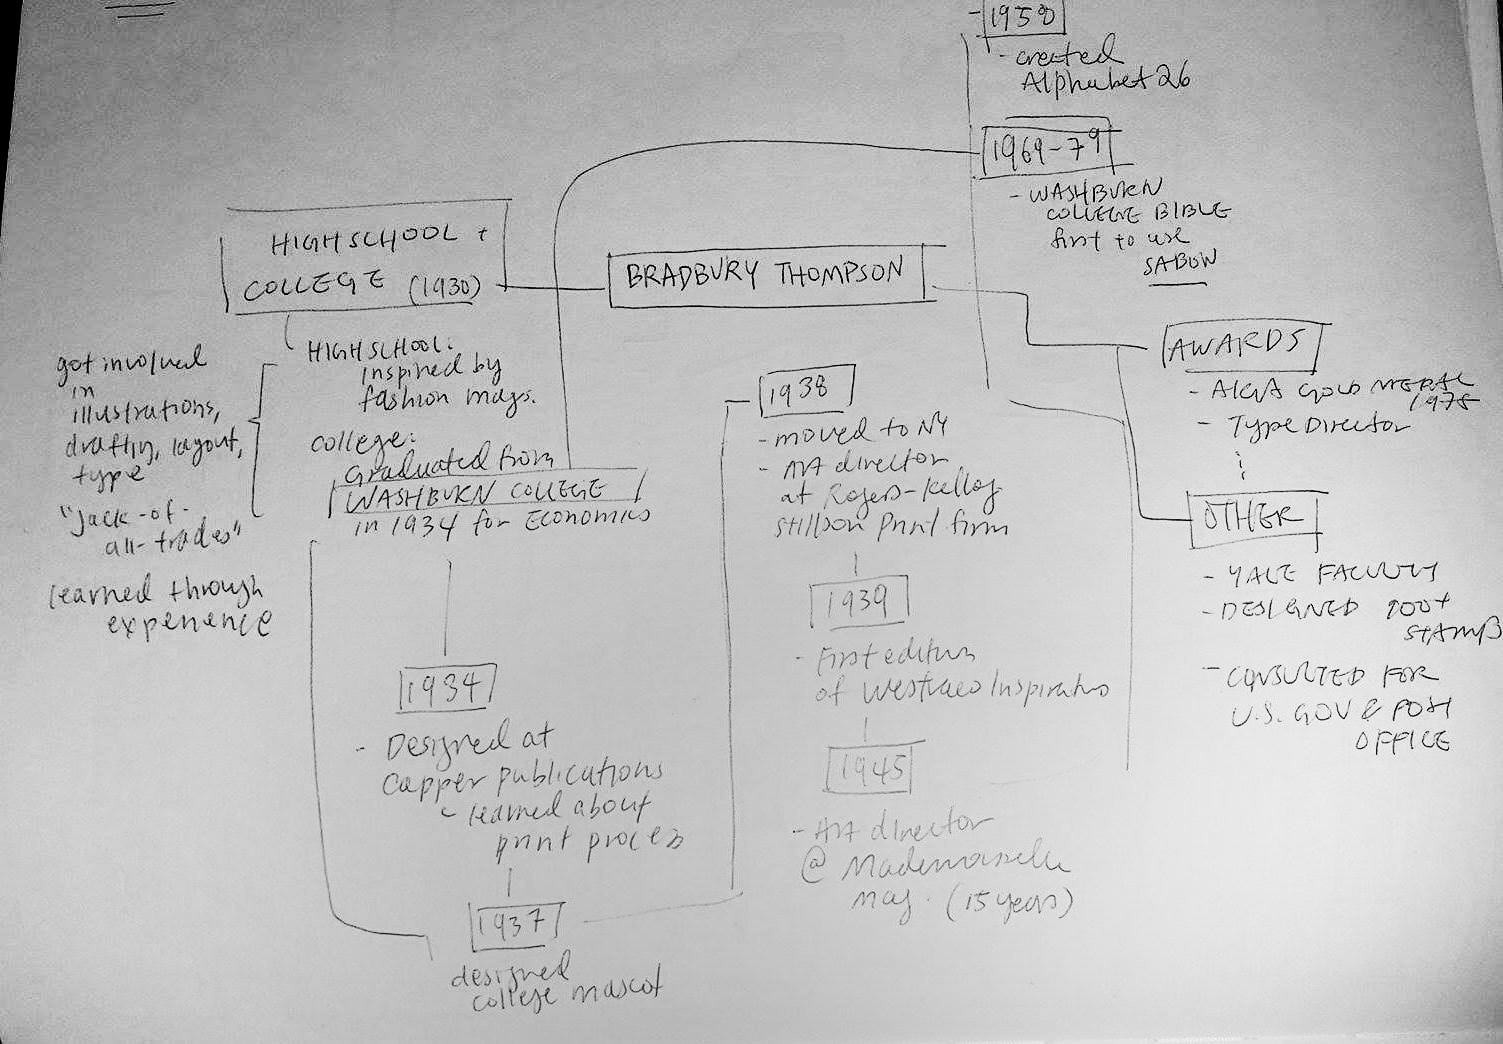 BRADBURY THOMPSON
HIGH SCHOOL +
COLLEGE (1930)
HIGH SCHOOL:
inspired by
fashion mags.
college:
Graduated from
WASHBURN COLLEGE
in 1934 for Economics
got involved
in
illustrations,
drafting, layout,
type
"jack-of-
all-trades"
learned through
experience
1934
- Designed at
Capper publications
- learned about
print process
1937
designed
college mascot
1938
- moved to NY
- Art director
at Rogers-Kellog
Stillson print firm
1939
- First edition
of Westvaco Inspirations
1945
- Art director
@ Mademoiselle
mag. (15 years)
- 1950
- created
Alphabet 26
1969-79
- WASHBURN
COLLEGE BIBLE
first to use
SABON
AWARDS
- AIGA GOLD MEDAL
1975
- Type Director
OTHER
- YALE FACULTY
- DESIGNED 900+
STAMPS
- CONSULTED FOR
U.S. GOV & POST
OFFICE